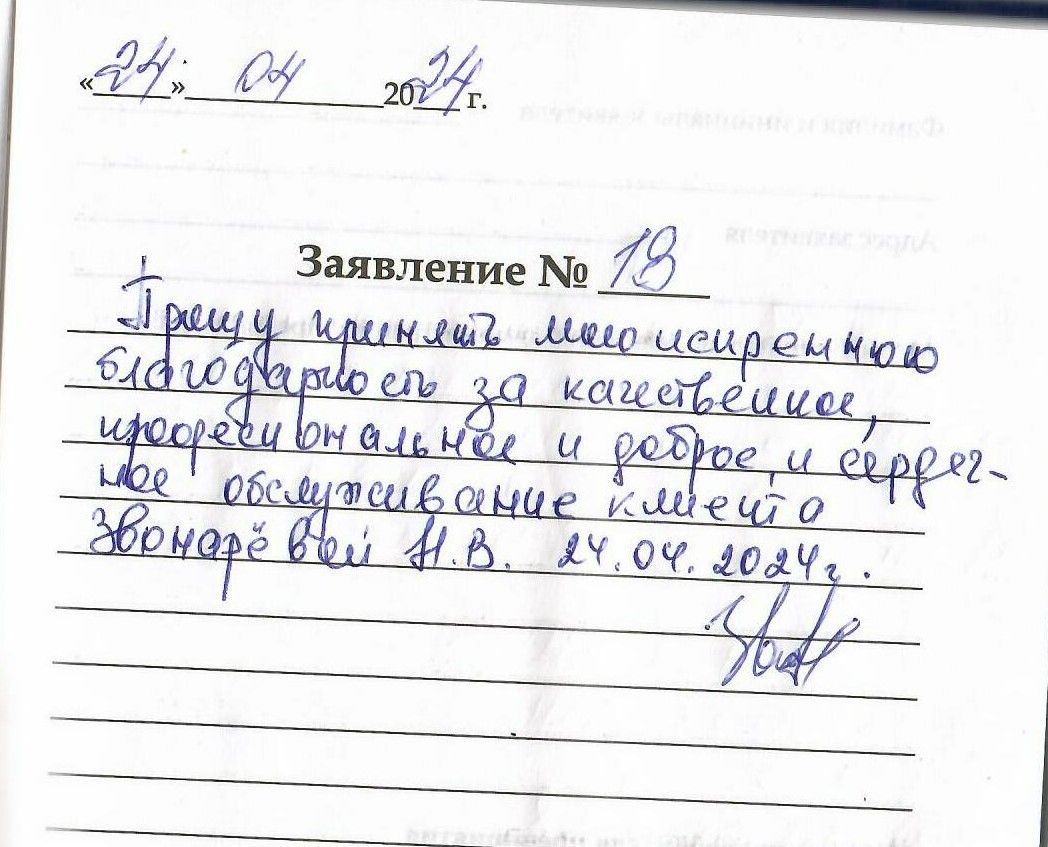 «24» 04 2024 г.
Заявление № 18
Прошу принять мою искреннюю
благодарность за качественное,
професиональное и доброе, и сердеч-
ное обслуживание клиента
Звонарёвой Н.В. 24.04.2024г.